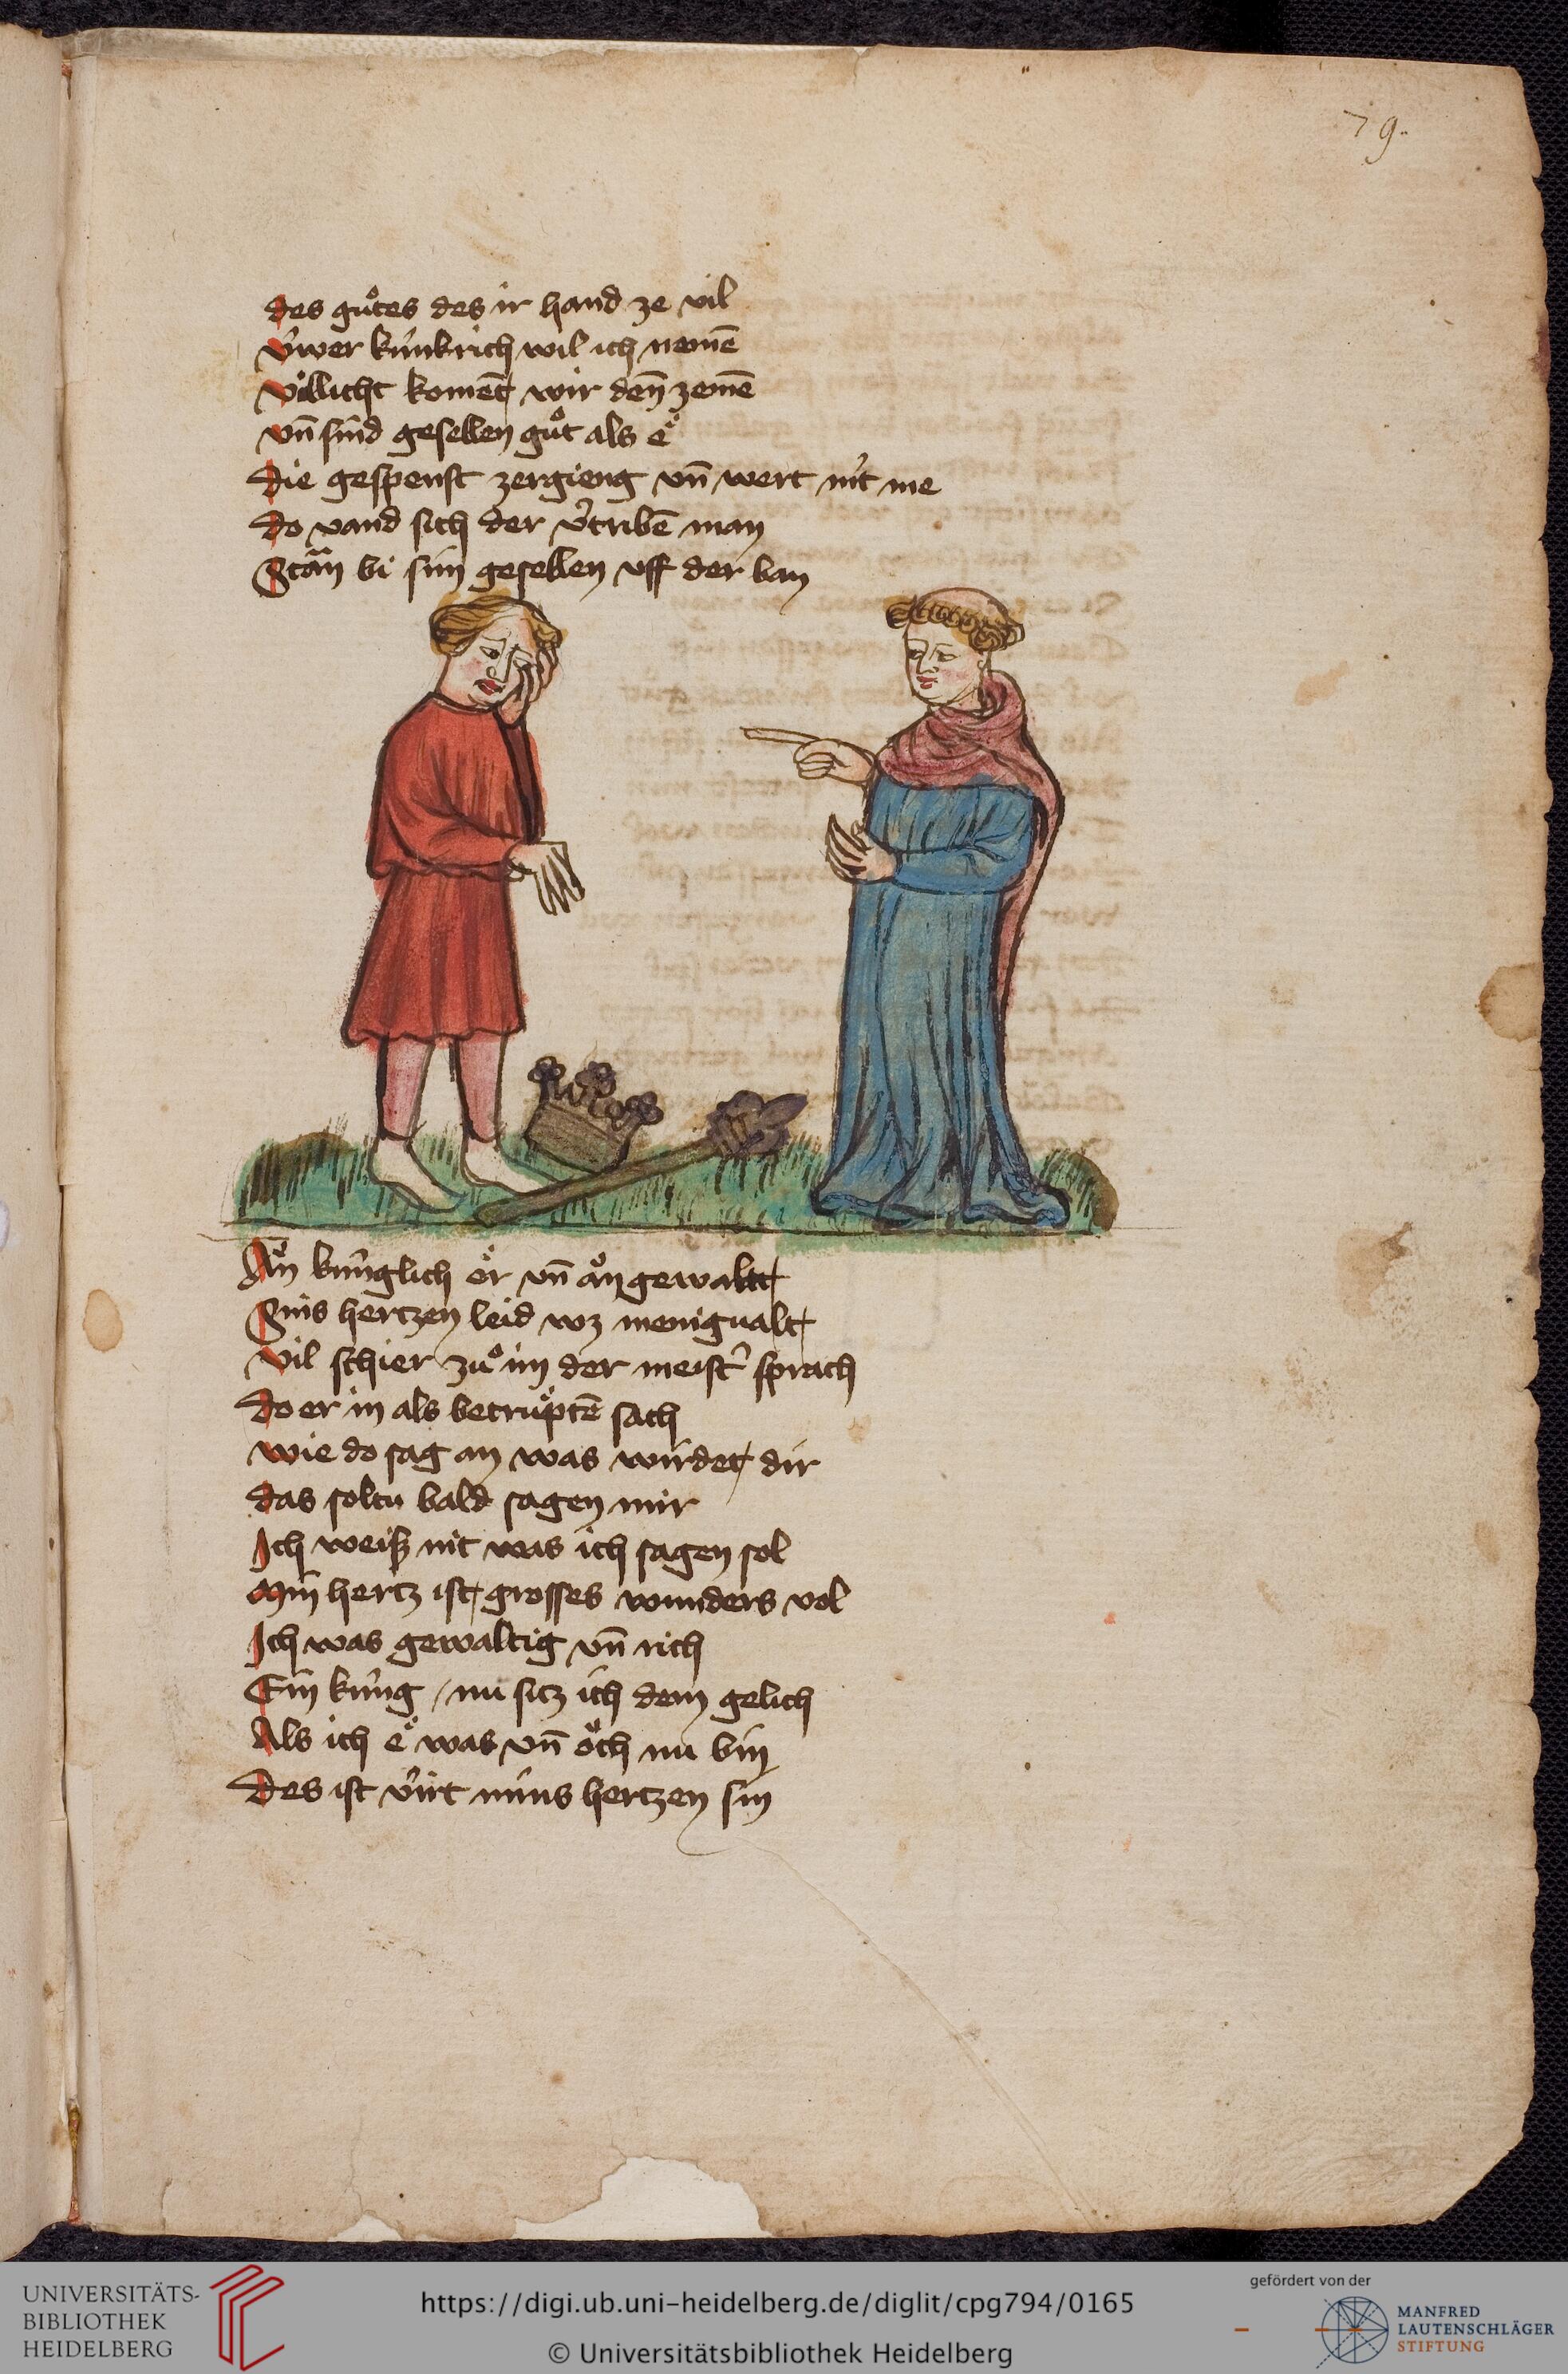 79.
des guͦtes des ir hand ze vil
v̓wer kúnkrich wil ich nemē
vıllicht komēt wir den̄ zemē
vn̄ sind gesellen guͦt als e͛
die gespenst zergieng vn̄ wert nit me
do vand sich der v̓tribē man
Stän bi sim gesellen vff der ban
Ån kúnglich er vn̄ ån gewaltt
Sins hertzen leid wz menigualt
vil schier zuͦ im der meist̓ sprach
do er in als betruͤptē sach
wie do sag an was wirdet dir
das soltu bald sagen mir
Ich weiß nit was ich sagen sol
Min hertz ist grosses wunders vol
Ich was gewaltig vn̄ rich
Ein kúng / nu sitz ich dem gelich
Als ich e͛ was vn̄ oͤch nu bin
Des ist v̓irt mins hertzen sin
UNIVERSITÄTS-
BIBLIOTHEK
HEIDELBERG
https://digi.ub.uni-heidelberg.de/diglit/cpg794/0165
© Universitätsbibliothek Heidelberg
gefördert von der
MANFRED
LAUTENSCHLÄGER
STIFTUNG